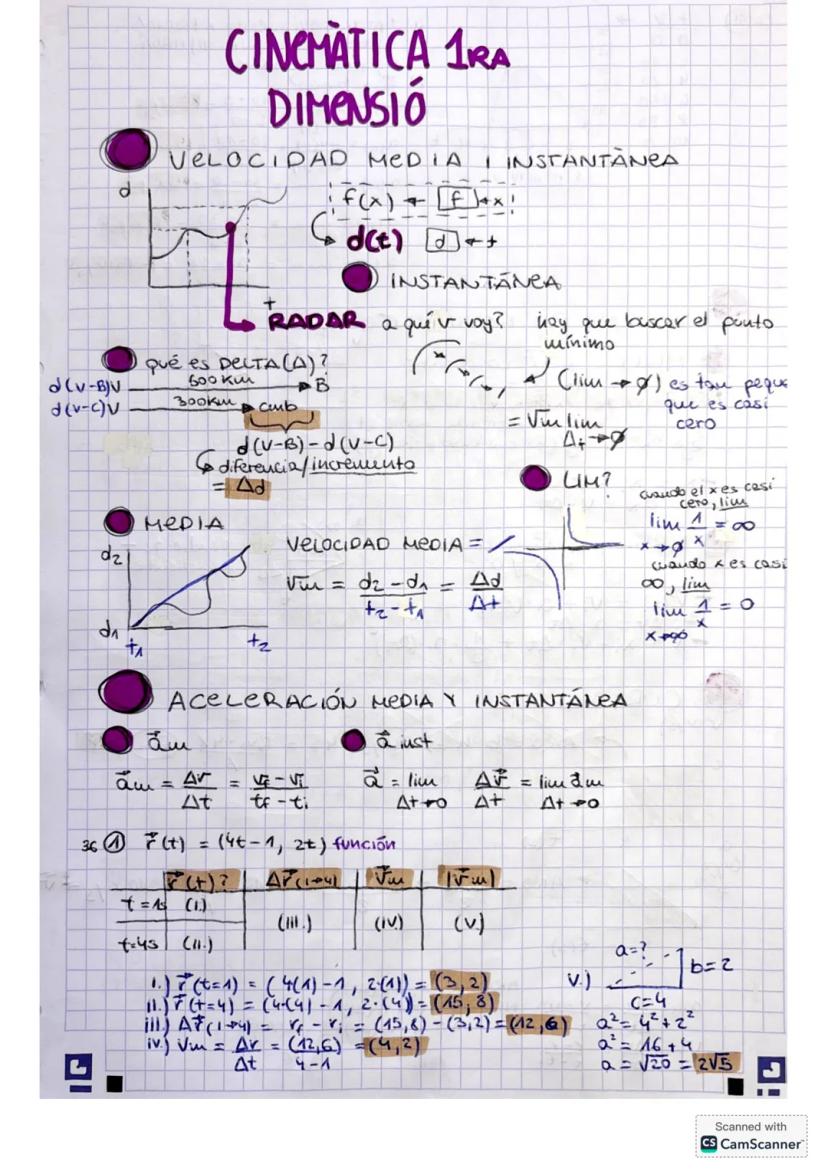 CINEMÀTICA 1RA
DIMENSIÓ
VELOCIDAD MEDIA I INSTANTÀNEA
d
f(x) ← [f] ← x
d(t) [d] ← t
INSTANTÀNEA
t
RADAR a qué v voy? hay que buscar el punto
mínimo
qué es DELTA (Δ)?
d(V-B) V 600 Km B
d(V-C) V 300Km cmb
(lim → 0) es tan peque
que es casi
cero
= Vm lim
Δt→0
d(V-B) - d(V-C)
diferencia/incremento
= Δd
LIM?
cuando el x es casi
cero, lim
lim 1/x = ∞
x→0
cuando x es casi
∞, lim
lim 1/x = 0
x→∞
MEDIA
d2
d1
t1 t2
VELOCIDAD MEDIA =
Vm = d2 - d1 / t2 - t1 = Δd / Δt
ACELERACIÓN MEDIA Y INSTANTÁNEA
a⃗m
a⃗ inst
a⃗m = Δv / Δt = vf - vi / tf - ti
a⃗ = lim Δv⃗ / Δt = lim a⃗m
Δt→0 Δt→0
36 ① r⃗(t) = (4t-1, 2t) función
r⃗(t)? Δr⃗(1→4) V⃗m |V⃗m|
t = 1s (I.)
(III.) (IV.) (V.)
t=4s (II.)
I.) r⃗(t=1) = (4(1)-1, 2·(1)) = (3, 2)
II.) r⃗(t=4) = (4·(4)-1, 2·(4)) = (15, 8)
III.) Δr⃗(1→4) = rf - ri = (15,8) - (3,2) = (12, 6)
IV.) Vm = Δr / Δt = (12,6) / 4-1 = (4,2)
V.) a=? b=2
c=4
a² = 4² + 2²
a² = 16 + 4
a = √20 = 2√5
Scanned with
CS CamScanner